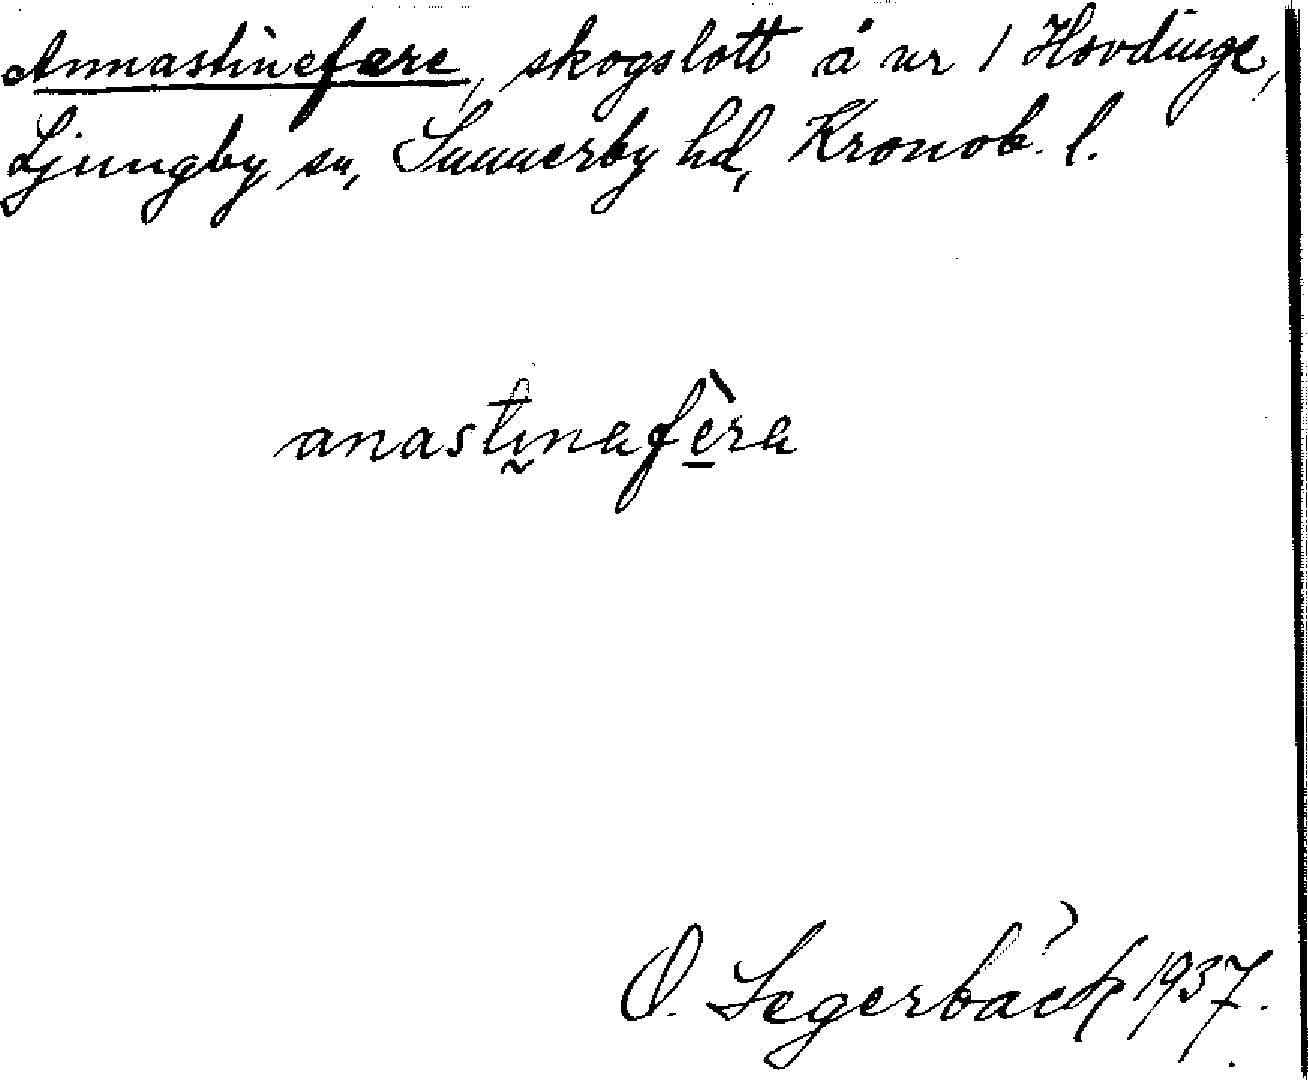 Annastinefære, skogslott å nr 1 Hovdinge,
Ljungby sn, Sunnerby hd, Kronob. l.
anastinafèra
O. Segerbäck 1937.